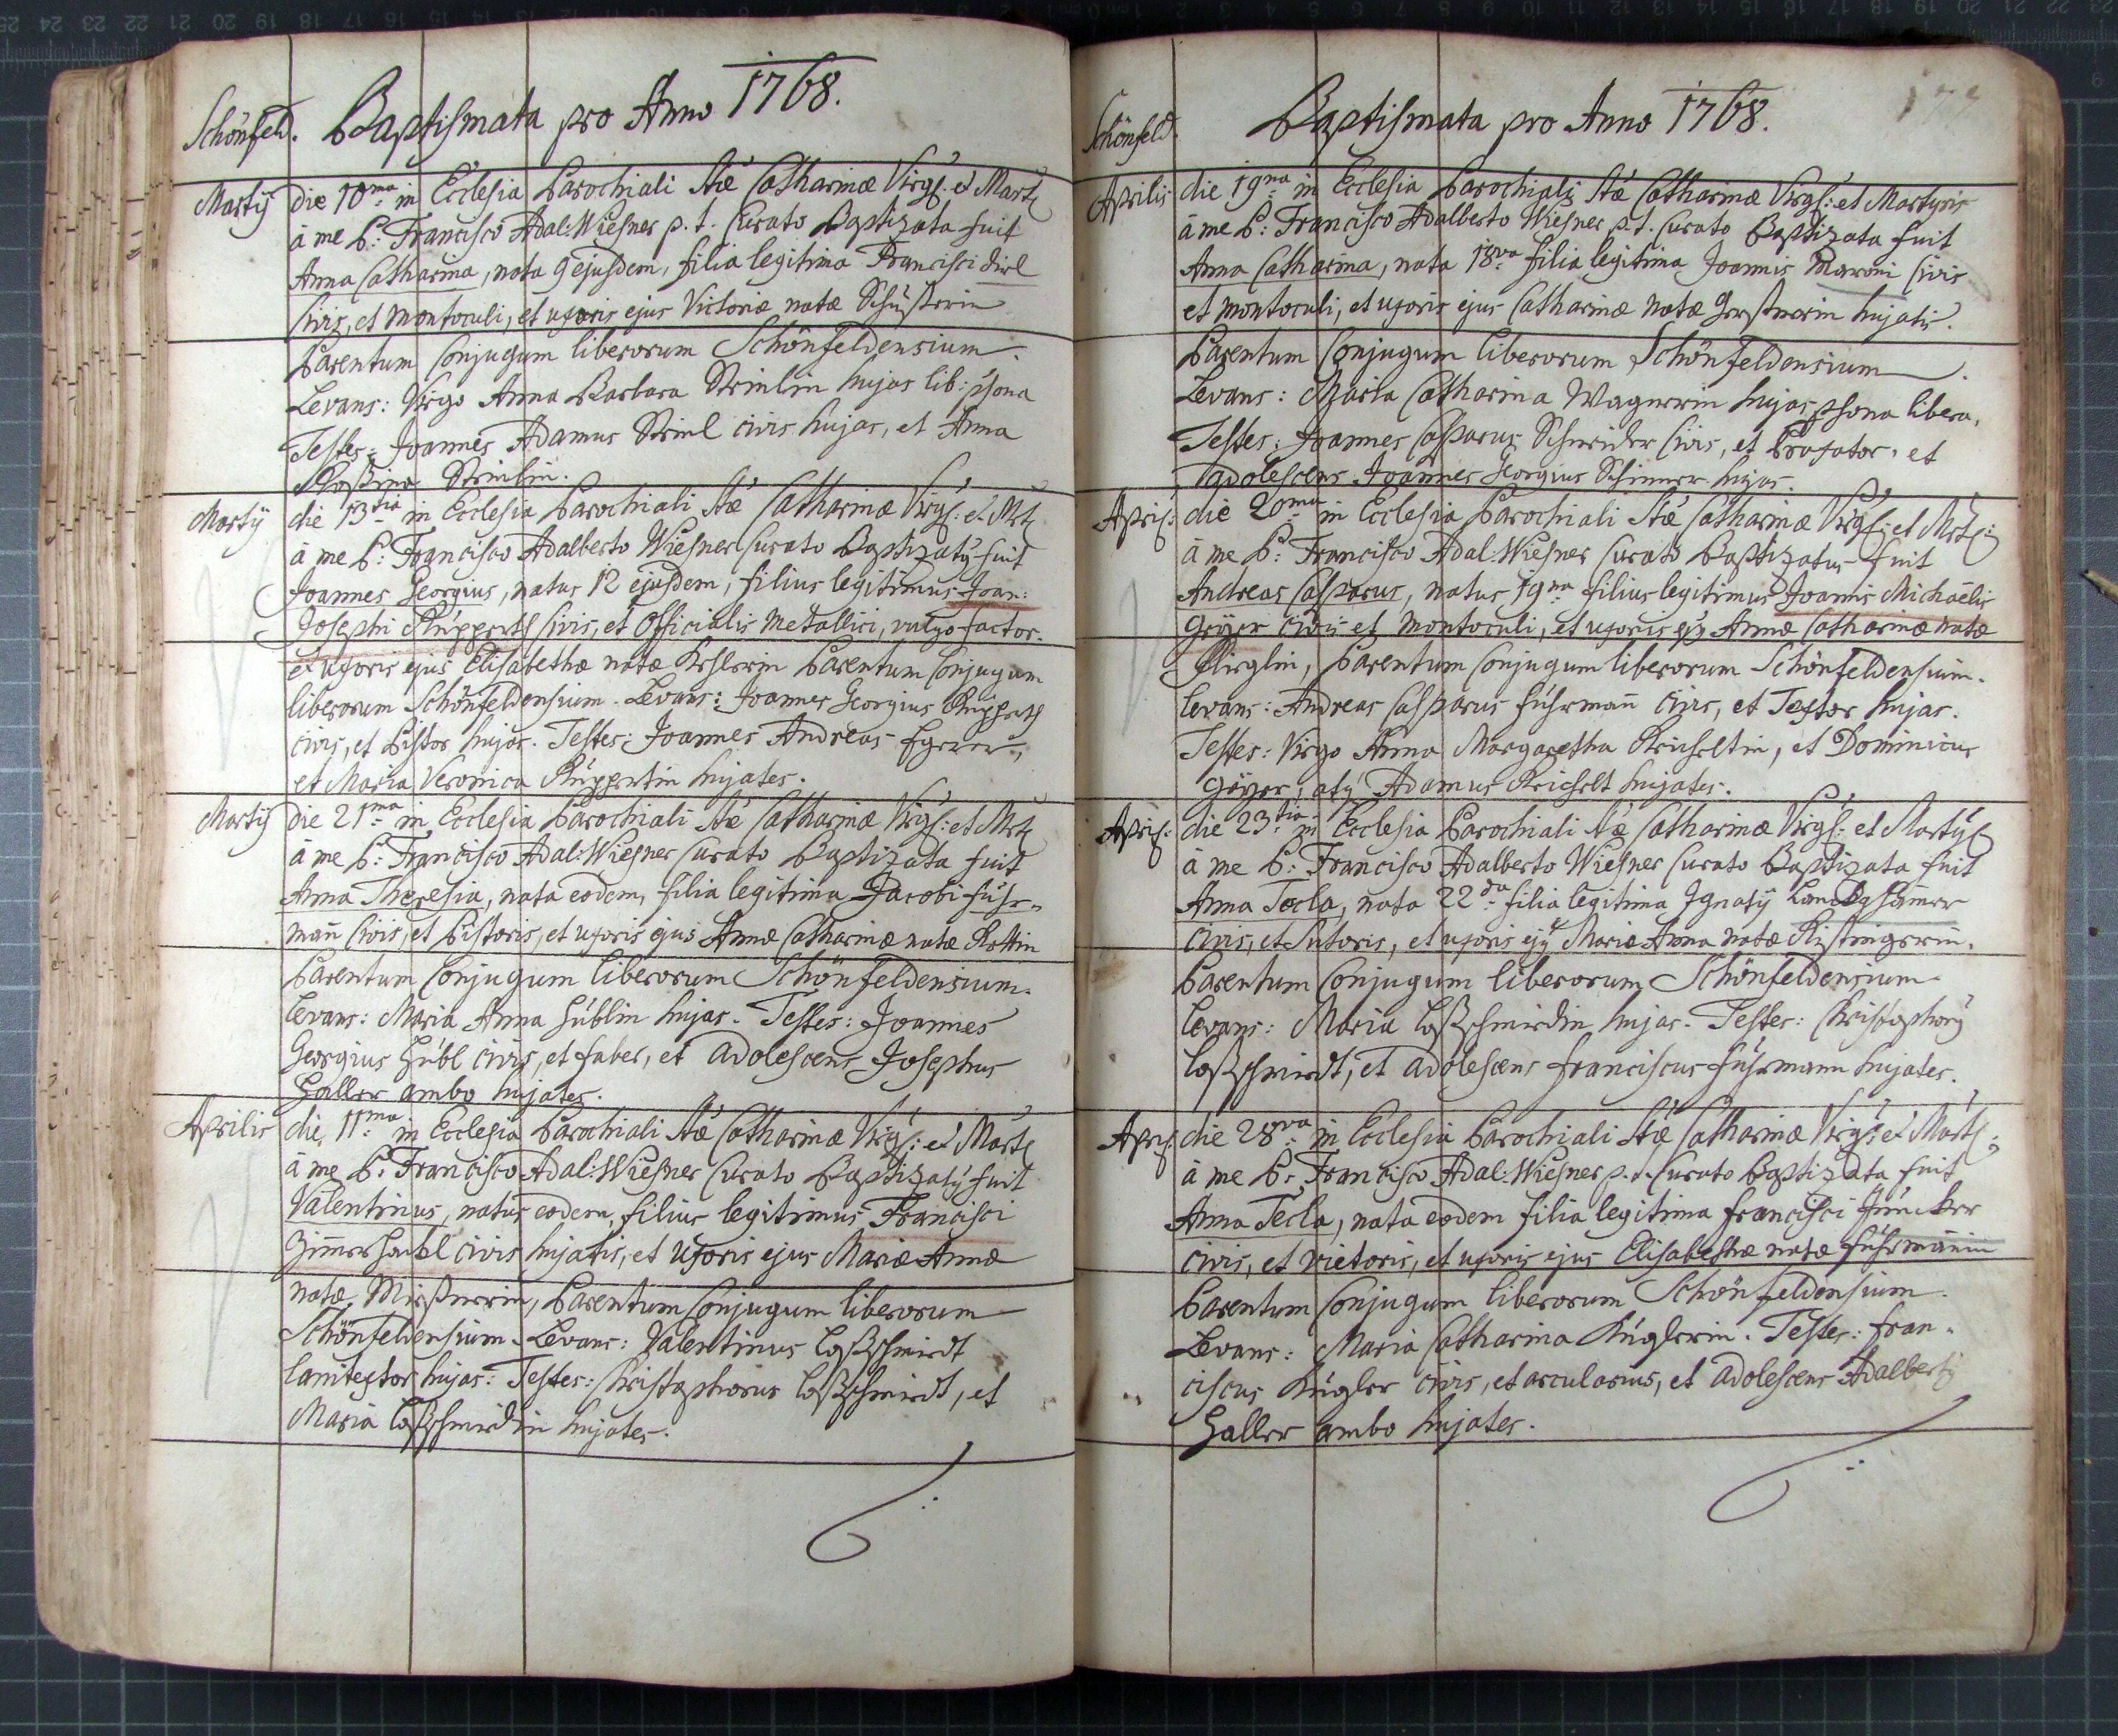 Schönfeld. Baptismata pro Anno 1768.
Martÿ die 10ma in Ecclesia Parochiali Stæ Catharinæ Virg: et Mart
à me P: Francisco Adal: Wiesner p. t. Curato Baptizata fuit
Anna Catharina, nata 9 ejusdem, filia legitima Francisci
Civis, et montoculi, et uxoris ejus Victoriæ natæ Schusterin
Parentum Conjugum liberorum Schönfeldensium.
Levans: Virgo Anna Barbara hujas lib: psona
Testes: Joannes Adamus civis hujas, et Anna
Rosina
Martÿ die 13tia in Ecclesia Parochiali Stæ Catharinæ Virg: et Mrt
à me P: Francisco Adalberto Wiesner Curato Baptizatȳ fuit
Joannes Georgius, natus 12 ejusdem, filius legitimus Joan:
Josephi Rüpperth Civis, et Officialis Metallici, vulgo factor.
et uxoris ejus Elisabethæ natæ Parentum Conjugum
liberorum Schönfeldensium. Levans: Joannes Georgius Rüpperth
civis, et Pistor hujas. Testes: Joannes Andreas
et Maria Veronica Rüppertin hujates.
Martÿ die 21ma in Ecclesia Parochiali Stæ Catharinæ Virg: et Mrt
à me P: Francisco Adal: Wiesner Curato Baptizata fuit
Anna Theresia, nata eodem, filia legitima Jacobi Führ-
mañ Civis, et Pistoris, et uxoris ejus Annæ Catharinæ natæ
Parentum Conjugum liberorum Schönfeldensium.
Levans: Maria Anna Hüblin hujas. Testes: Joannes
Georgius Hübl civis, et faber, et adolescens Josephus
Haller ambo hujates.
Aprilis die 11ma in Ecclesia Parochiali Stæ Catharinæ Virg: et Mart
à me P: Francisco Adal: Wiesner Curato Baptizatȳ fuit
Valentinus, natus eodem, filius legitimus Francisci
civis hujatis, et Uxoris ejus Mariæ Annæ
natæ Parentum Conjugum liberorum
Schönfeldensium. Levans: Valentinus Loßschmidt
lanitextor hujas. Testes: Christophorus Loßschmidt, et
Maria Loßschmidin hujates.
Schönfeld. Baptismata pro Anno 1768.
Aprilis die 19na in Ecclesia Parochiali Stæ Catharinæ Virg: et Martyris
à me P: Francisco Adalberto Wiesner p. t. Curato Baptizata fuit
Anna Catharina, nata 18va filia legitima Joannis Maroni Civis
et montoculi, et uxoris ejus Catharinæ natæ Gerstnerin hujatis.
Parentum Conjugum liberorum Schönfeldensium
Levans: Maria Catharina Wagnerin hujas psona libera.
Testes: Joannes Casparus Schneider Civis, et et
adolescens Joannes Georgius hujas.
Apri: die 20ma in Ecclesia Parochiali Stæ Catharinæ Virg: et Mrt:
à me P: Francisco Adal: Wiesner Curato Baptizatus fuit
Andreas Casparus, natus 19na filius legitimus Joannis Michaelis
Göyer civis et montoculi, et uxoris ejȳ Annæ Catharinæ natæ
Parentum Conjugum liberorum Schönfeldensium.
Levans: Andreas Casparus Führmañ Civis, et Textor hujas.
Testes: Virgo Anna Margaretha Reicheltin, et Dominicus
Göyer, atȳ Adamus Reichelt hujates.
Apri: die 23tia in Ecclesia Parochiali Stæ Catharinæ Virg: et Martÿ
à me P: Francisco Adalberto Wiesner Curato Baptizata fuit
Anna Tecla, nata 22da filia legitima Ignatÿ
Civis, et Sutoris, et uxoris ejȳ Mariæ Anna natæ
Parentum Conjugum liberorum Schönfeldensium
Levans: Maria Loßschmidin hujas. Testes: Christophorȳ
Loßschmidt, et adolescens Franciscus Führmann hujates.
Apri: die 28va in Ecclesia Parochiali Stæ Catharinæ Virg: et Mart:
à me P: Francisco Adal: Wiesner p. t. Curato Baptizata fuit
Anna Tecla, nata eodem filia legitima Francisci Juncker
civis, et vietoris, et uxoris ejus Elisabethæ natæ Führmanin
Parentum Conjugum liberorum Schönfeldensium.
Levans: Maria Catharina Kuglerin. Testes: Fran-
ciscus Kugler civis, et arcularius, et adolescens Adalbertȳ
Haller ambo hujates.